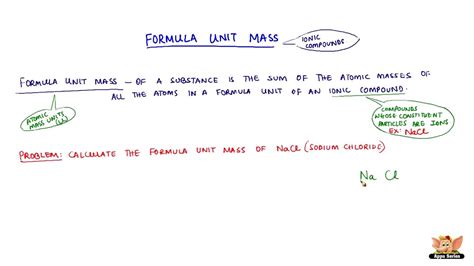 FORMULA UNIT MASS
IONIC
COMPOUNDS
FORMULA UNIT MASS – OF A SUBSTANCE IS THE SUM OF THE ATOMIC MASSES OF
ALL THE ATOMS IN A FORMULA UNIT OF AN IONIC COMPOUND.
ATOMIC
MASS UNITS
(u)
COMPOUNDS
WHOSE CONSTITUENT
PARTICLES ARE IONS
EX: NaCl
PROBLEM: CALCULATE THE FORMULA UNIT MASS OF NaCl (SODIUM CHLORIDE)
Na Cl
Appu Series